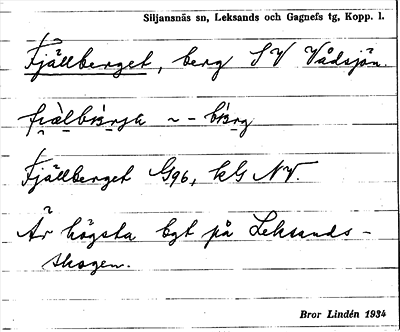 Siljansnäs sn, Leksands och Gagnefs tg, Kopp. l.
Fjällberget, berg SV Vådsjön.
Fjällberget G96, kG NV.
Är högsta bgt på Leksands-
skogen.
Bror Lindén 1934